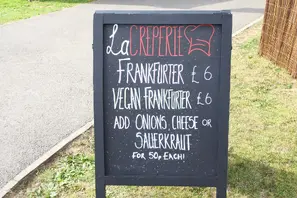 La CRÊPERIE
FRANKFURTER £6
VEGAN FRANKFURTER £6
ADD ONIONS, CHEESE OR
SAUERKRAUT
FOR 50p EACH!